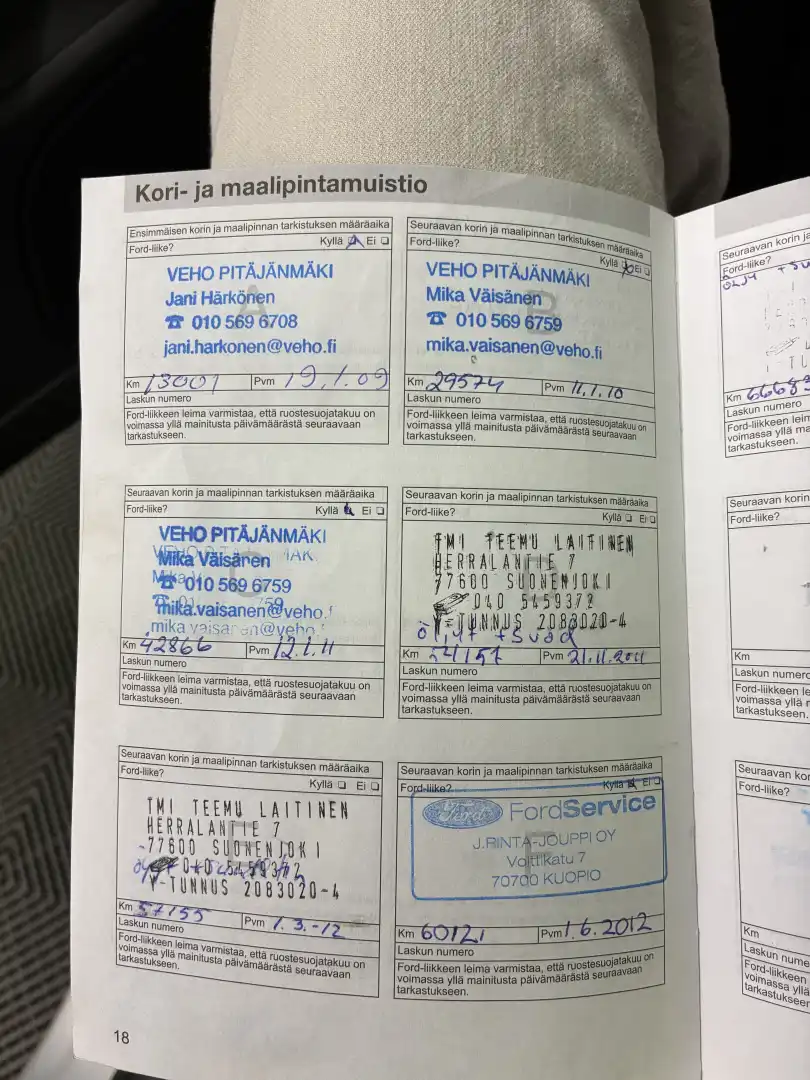 Kori- ja maalipintamuistio
Ensimmäisen korin ja maalipinnan tarkistuksen määräaika
Ford-liike? Kyllä Ei
A
VEHO PITÄJÄNMÄKI
Jani Härkönen
☎ 010 569 6708
jani.harkonen@veho.fi
Km 13001 Pvm 19.1.09
Laskun numero
Ford-liikkeen leima varmistaa, että ruostesuojatakuu on
voimassa yllä mainitusta päivämäärästä seuraavaan
tarkastukseen.
Seuraavan korin ja maalipinnan tarkistuksen määräaika
Ford-liike? Kyllä Ei
B
VEHO PITÄJÄNMÄKI
Mika Väisänen
☎ 010 569 6759
mika.vaisanen@veho.fi
Km 29574 Pvm 11.1.10
Laskun numero
Ford-liikkeen leima varmistaa, että ruostesuojatakuu on
voimassa yllä mainitusta päivämäärästä seuraavaan
tarkastukseen.
Seuraavan korin ja maalipinnan tarkistuksen määräaika
Ford-liike? Kyllä Ei
C
VEHO PITÄJÄNMÄKI
Mika Väisänen
☎ 010 569 6759
mika.vaisanen@veho.f
mika.vaisanen@veho.
Km 42866 Pvm 12.1.11
Laskun numero
Ford-liikkeen leima varmistaa, että ruostesuojatakuu on
voimassa yllä mainitusta päivämäärästä seuraavaan
tarkastukseen.
Seuraavan korin ja maalipinnan tarkistuksen määräaika
Ford-liike? Kyllä Ei
TMI TEEMU LAITINEN
HERRALANTIE 7
77600 SUONENJOKI
040 5459372
Y-TUNNUS 2083020-4
öljyt + suod
Km 54157 Pvm 21.11.2011
Laskun numero
Ford-liikkeen leima varmistaa, että ruostesuojatakuu on
voimassa yllä mainitusta päivämäärästä seuraavaan
tarkastukseen.
Seuraavan korin ja maalipinnan tarkistuksen määräaika
Ford-liike? Kyllä Ei
TMI TEEMU LAITINEN
HERRALANTIE 7
77600 SUONENJOKI
040 5459372
Y-TUNNUS 2083020-4
Km 57155 Pvm 1.3.-12
Laskun numero
Ford-liikkeen leima varmistaa, että ruostesuojatakuu on
voimassa yllä mainitusta päivämäärästä seuraavaan
tarkastukseen.
Seuraavan korin ja maalipinnan tarkistuksen määräaika
Ford-liike? Kyllä Ei
F
Ford FordService
J.RINTA-JOUPPI OY
Voittikatu 7
70700 KUOPIO
Km 60121 Pvm 1.6.2012
Laskun numero
Ford-liikkeen leima varmistaa, että ruostesuojatakuu on
voimassa yllä mainitusta päivämäärästä seuraavaan
tarkastukseen.
18
Seuraavan korin ja
Ford-liike?
Km 66683
Laskun numero
Ford-liikkeen leim
voimassa yllä ma
tarkastukseen.
Seuraavan korin
Ford-liike?
Km
Laskun numero
Ford-liikkeen le
voimassa yllä r
tarkastukseen.
Seuraavan kor
Ford-liike?
Km
Laskun nume
Ford-liikkeen
voimassa yllä
tarkastukseer